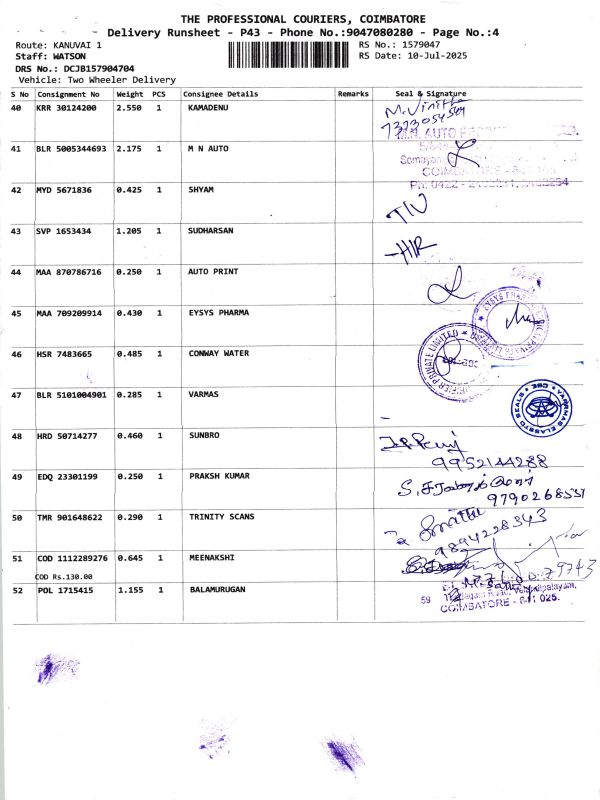 THE PROFESSIONAL COURIERS, COIMBATORE
Delivery Runsheet - P43 - Phone No.:9047080280 - Page No.:4
Route: KANUVAI 1
RS No.: 1579047
Staff: WATSON
RS Date: 10-Jul-2025
DRS No.: DCJB157904704
Vehicle: Two Wheeler Delivery
S No Consignment No Weight PCS Consignee Details Remarks Seal & Signature
40 KRR 30124200 2.550 1 KAMADENU
41 BLR 5005344693 2.175 1 M N AUTO
M.N. AUTO
COIMBATORE
42 MYD 5671836 0.425 1 SHYAM
43 SVP 1653434 1.205 1 SUDHARSAN
44 MAA 870786716 0.250 1 AUTO PRINT
45 MAA 709209914 0.430 1 EYSYS PHARMA
46 HSR 7483665 0.485 1 CONWAY WATER
PRIVATE LIMITED
47 BLR 5101004901 0.285 1 VARMAS
48 HRD 50714277 0.460 1 SUNBRO
9952144288
49 EDQ 23301199 0.250 1 PRAKSH KUMAR
9790268531
50 TMR 901648622 0.290 1 TRINITY SCANS
9894228343
51 COD 1112289276 0.645 1 MEENAKSHI
COD Rs.130.00
52 POL 1715415 1.155 1 BALAMURUGAN
COIMBATORE - 641 025.